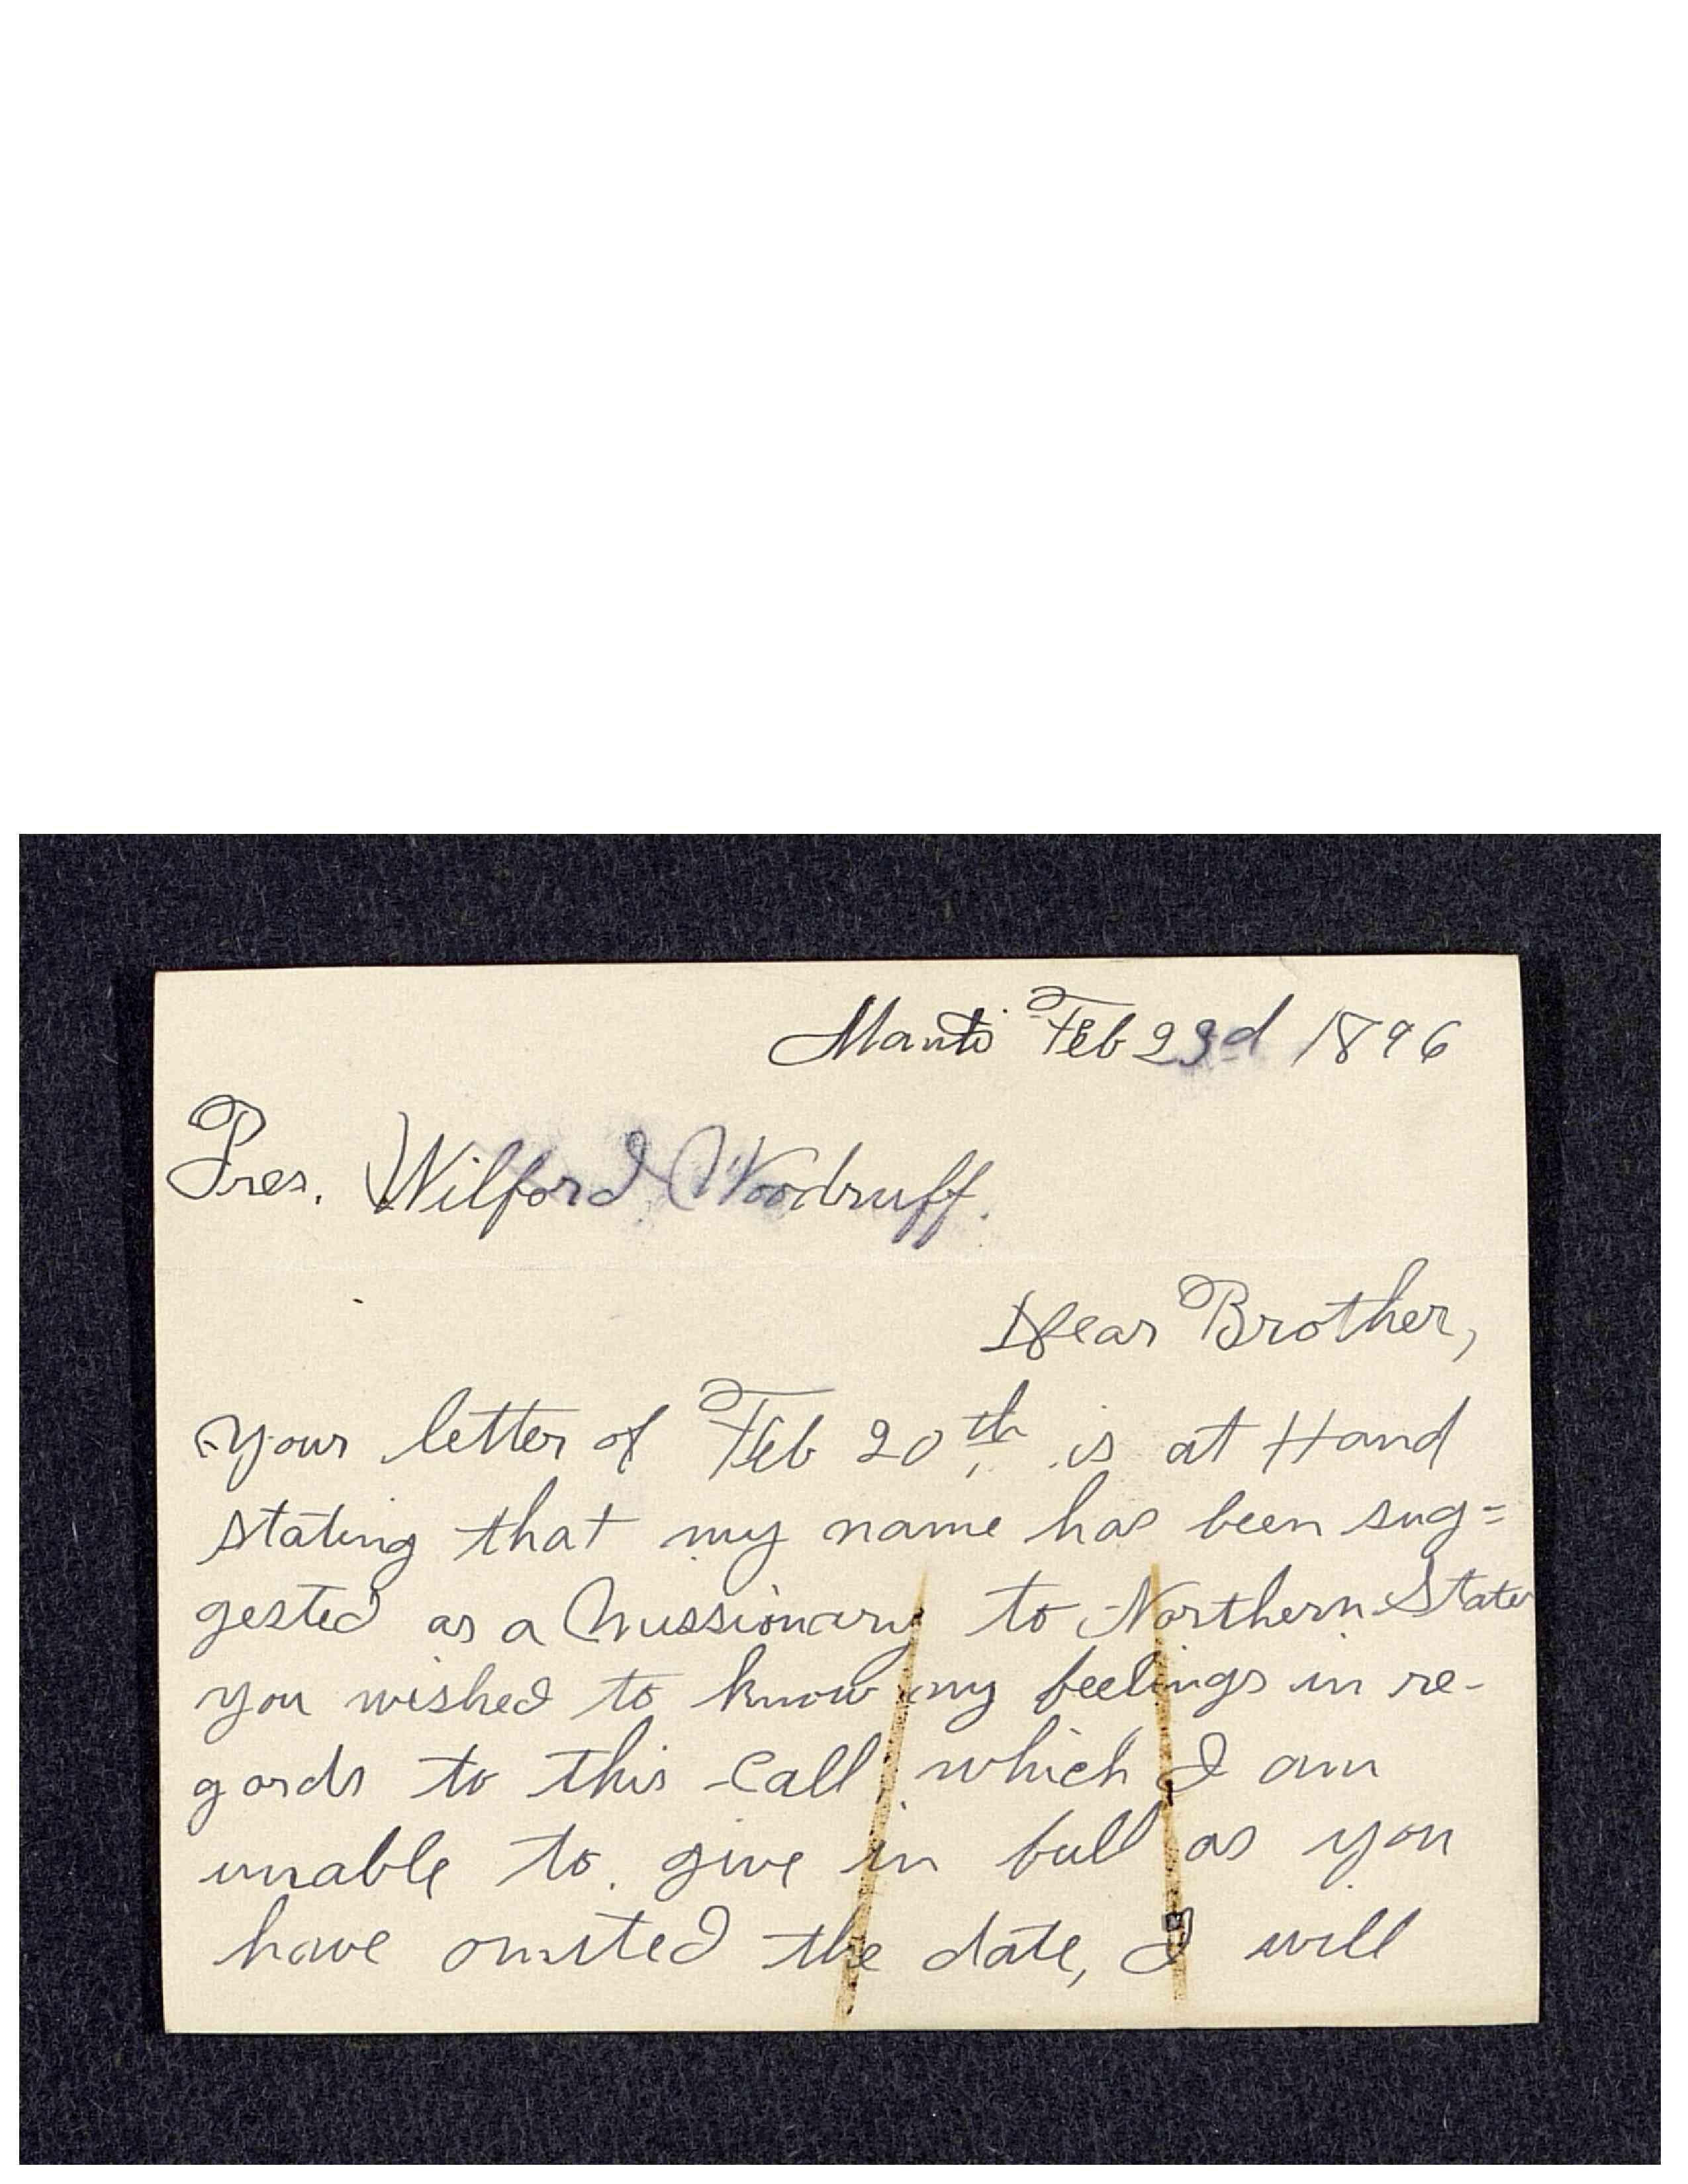 Manti Feb 23d 1896
Pres. Wilford Woodruff.
Dear Brother,
Your letter of Feb 20th is at Hand
stating that my name has been sug=
gested as a Missionary to Northern States
you wished to know my feelings in re-
gards to this Call which I am
unable to give in full as you
have omited the date, I will